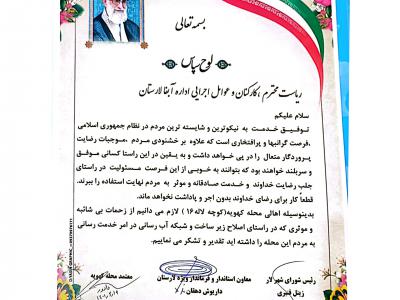 بسمه تعالی
لوح سپاس
ریاست محترم ، کارکنان و عوامل اجرایی اداره آبفا لارستان
سلام علیکم
توفیق خدمت به نیکوترین و شایسته ترین مردم در نظام جمهوری اسلامی
،فرصت گرانبها و پرافتخاری است که علاوه بر خشنودی مردم ،موجبات رضایت
پروردگار متعال را در پی خواهد داشت و به یقین در این راستا کسانی موفق
و سربلند خواهند بود که بتوانند به خوبی از این فرصت مسئولیت در راستای
جلب رضایت خداوند و خدمت صادقانه و موثر به مردم نهایت استفاده را ببرند.
قطعاً کار برای رضای خداوند بدون اجر و پاداش نخواهد ماند.
بدینوسیله اهالی محله کهویه(کوچه لاله ۱۶) لازم می دانیم از زحمات بی شائبه
و موثری که در راستای اصلاح زیر ساخت و شبکه آب رسانی در امر خدمت رسانی
به مردم این محله را داشته اید تقدیر و تشکر می نماییم.
رئیس شورای شهر لار
زینل قنبری
معاون استاندار و فرماندار ویژه لارستان
داریوش دهقان
معتمد محله کهویه